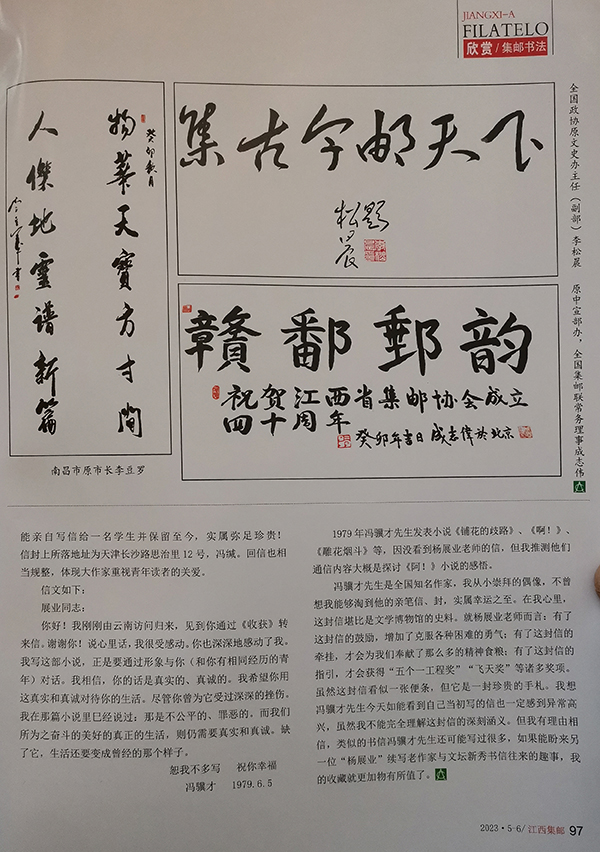 JIANGXI-A
FILATELO
欣赏/集邮书法
物華天寶方寸間
人傑地靈譜新篇
癸卯秋月
南昌市原市长李豆罗
集古今邮天下
松晨題
贛鄱郵韵
祝贺江西省集邮协会成立
四十周年
癸卯年吉日 成志偉於北京
全国政协原文史办主任（副部）李松晨
原中宣部办，全国集邮联常务理事成志伟
能亲自写信给一名学生并保留至今，实属弥足珍贵！
信封上所落地址为天津长沙路思治里12号，冯缄。回信也相
当规整，体现大作家重视青年读者的关爱。
信文如下：
展业同志：
你好！我刚刚由云南访问归来，见到你通过《收获》转
来信。谢谢你！说心里话，我很受感动。你也深深地感动了我。
我写这部小说，正是要通过形象与你（和你有相同经历的青
年）对话。我相信，你的话是真实的、真诚的。我希望你用
这真实和真诚对待你的生活。尽管你曾为它受过深深的挫伤。
我在那篇小说里已经说过：那是不公平的、罪恶的。而我们
所为之奋斗的美好的真正的生活，则仍需要真实和真诚。缺
了它，生活还要变成曾经的那个样子。
恕我不多写 祝你幸福
冯骥才 1979.6.5
1979年冯骥才先生发表小说《铺花的歧路》、《啊！》、
《雕花烟斗》等，因没看到杨展业老师的信，但我推测他们
通信内容大概是探讨《阿！》小说的感悟。
冯骥才先生是全国知名作家，我从小崇拜的偶像，不曾
想我能够淘到他的亲笔信、封，实属幸运之至。在我心里，
这封信堪比是文学博物馆的史料。就杨展业老师而言：有了
这封信的鼓励，增加了克服各种困难的勇气；有了这封信的
牵挂，才会为我们奉献了那么多的精神食粮；有了这封信的
指引，才会获得“五个一工程奖”“飞天奖”等诸多奖项。
虽然这封信看似一张便条，但它是一封珍贵的手札。我想
冯骥才先生今天如能看到自己当初写的信也一定感到异常高
兴，虽然我不能完全理解这封信的深刻涵义。但我有理由相
信，类似的书信冯骥才先生还可能写过很多，如果能盼来另
一位“杨展业”续写老作家与文坛新秀书信往来的趣事，我
的收藏就更加物有所值了。
2023·5-6/江西集邮 97